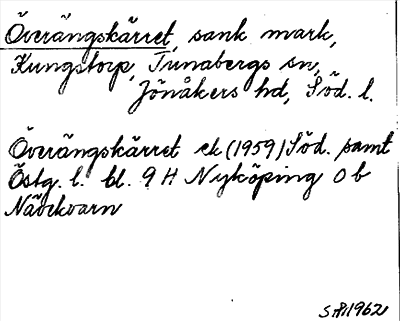 Överängskärret, sank mark,
Kungstorp, Tunabergs sn,
Jönåkers hd, Söd. l.
Överängskärret ek (1959) Söd. samt
Östg. l. bl. 9 H Nyköping 0 b
Nävekvarn
1962